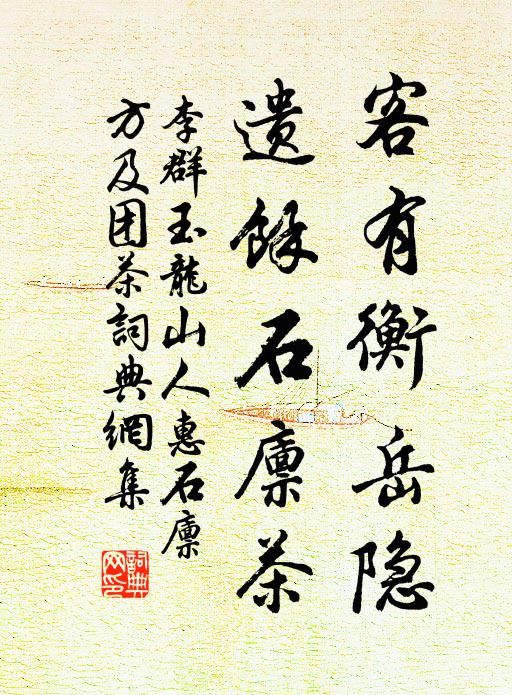 客有衡岳隐
遗馀石廪茶
李群玉龍山人惠石廪
方及团茶詞典網集
詞典网印